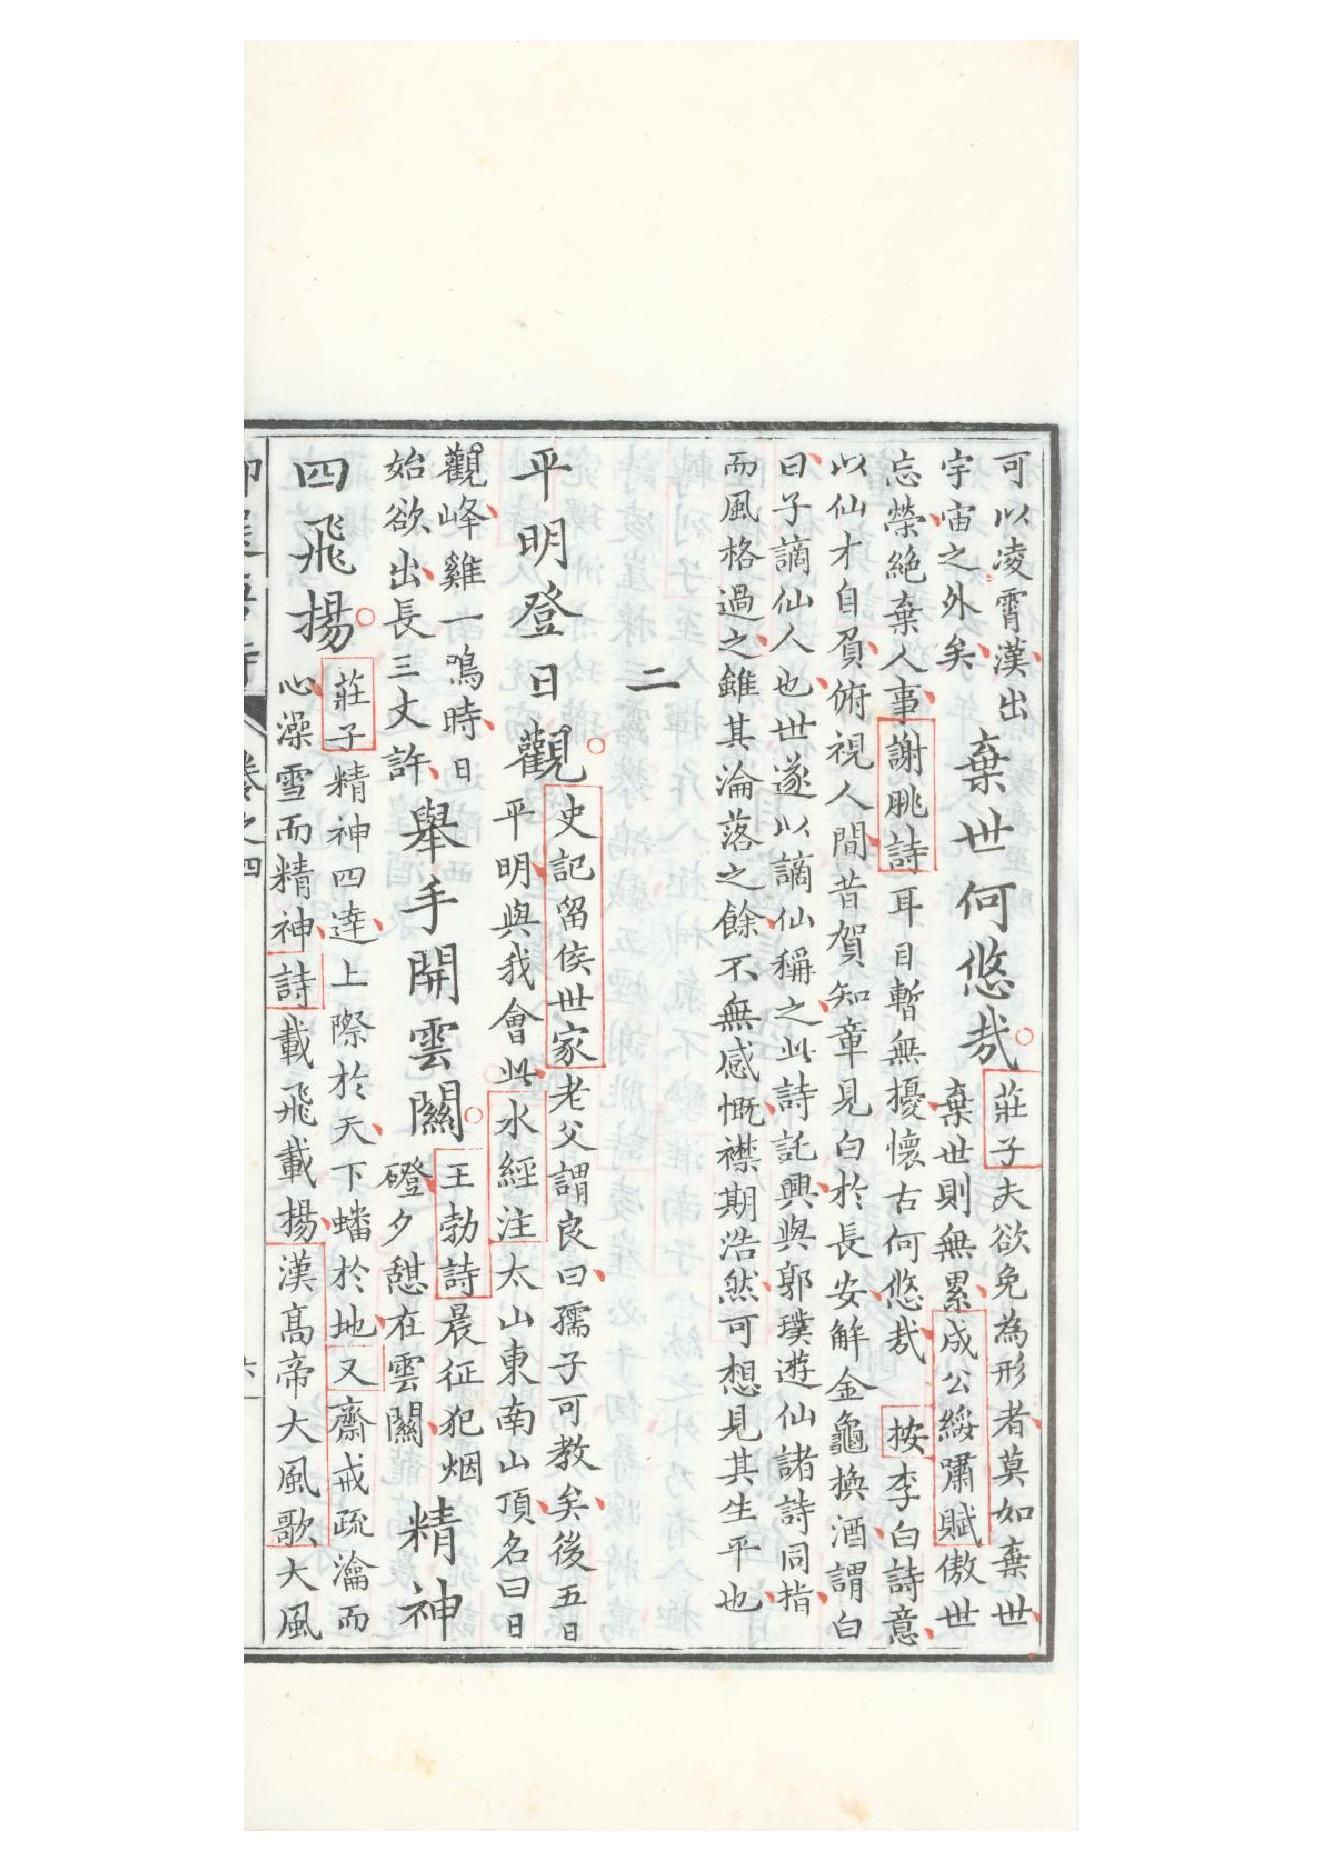 可以凌霄漢出
宇宙之外矣
棄世何悠哉
莊子夫欲免為形者莫如棄世
棄世則無累成公綏嘯賦傲世
忘榮絶棄人事謝朓詩耳目暫無擾懷古何悠哉按李白詩意
以仙才自負俯視人間昔賀知章見白於長安解金龜換酒謂白
曰子謫仙人也世遂以謫仙稱之此詩託興與郭璞遊仙諸詩同指
而風格過之雖其淪落之餘不無感慨襟期浩然可想見其生平也
二
平明登日觀
史記留侯世家老父謂良曰孺子可教矣後五日
平明與我會此水經注太山東南山頂名曰日
觀峰雞一鳴時日
始欲出長三丈許
舉手開雲關
王勃詩晨征犯烟
磴夕憩在雲關
精神
四飛揚
莊子精神四達上際於天下蟠於地又齋戒疏瀹而
心澡雪而精神詩載飛載揚漢高帝大風歌大風
卷之四